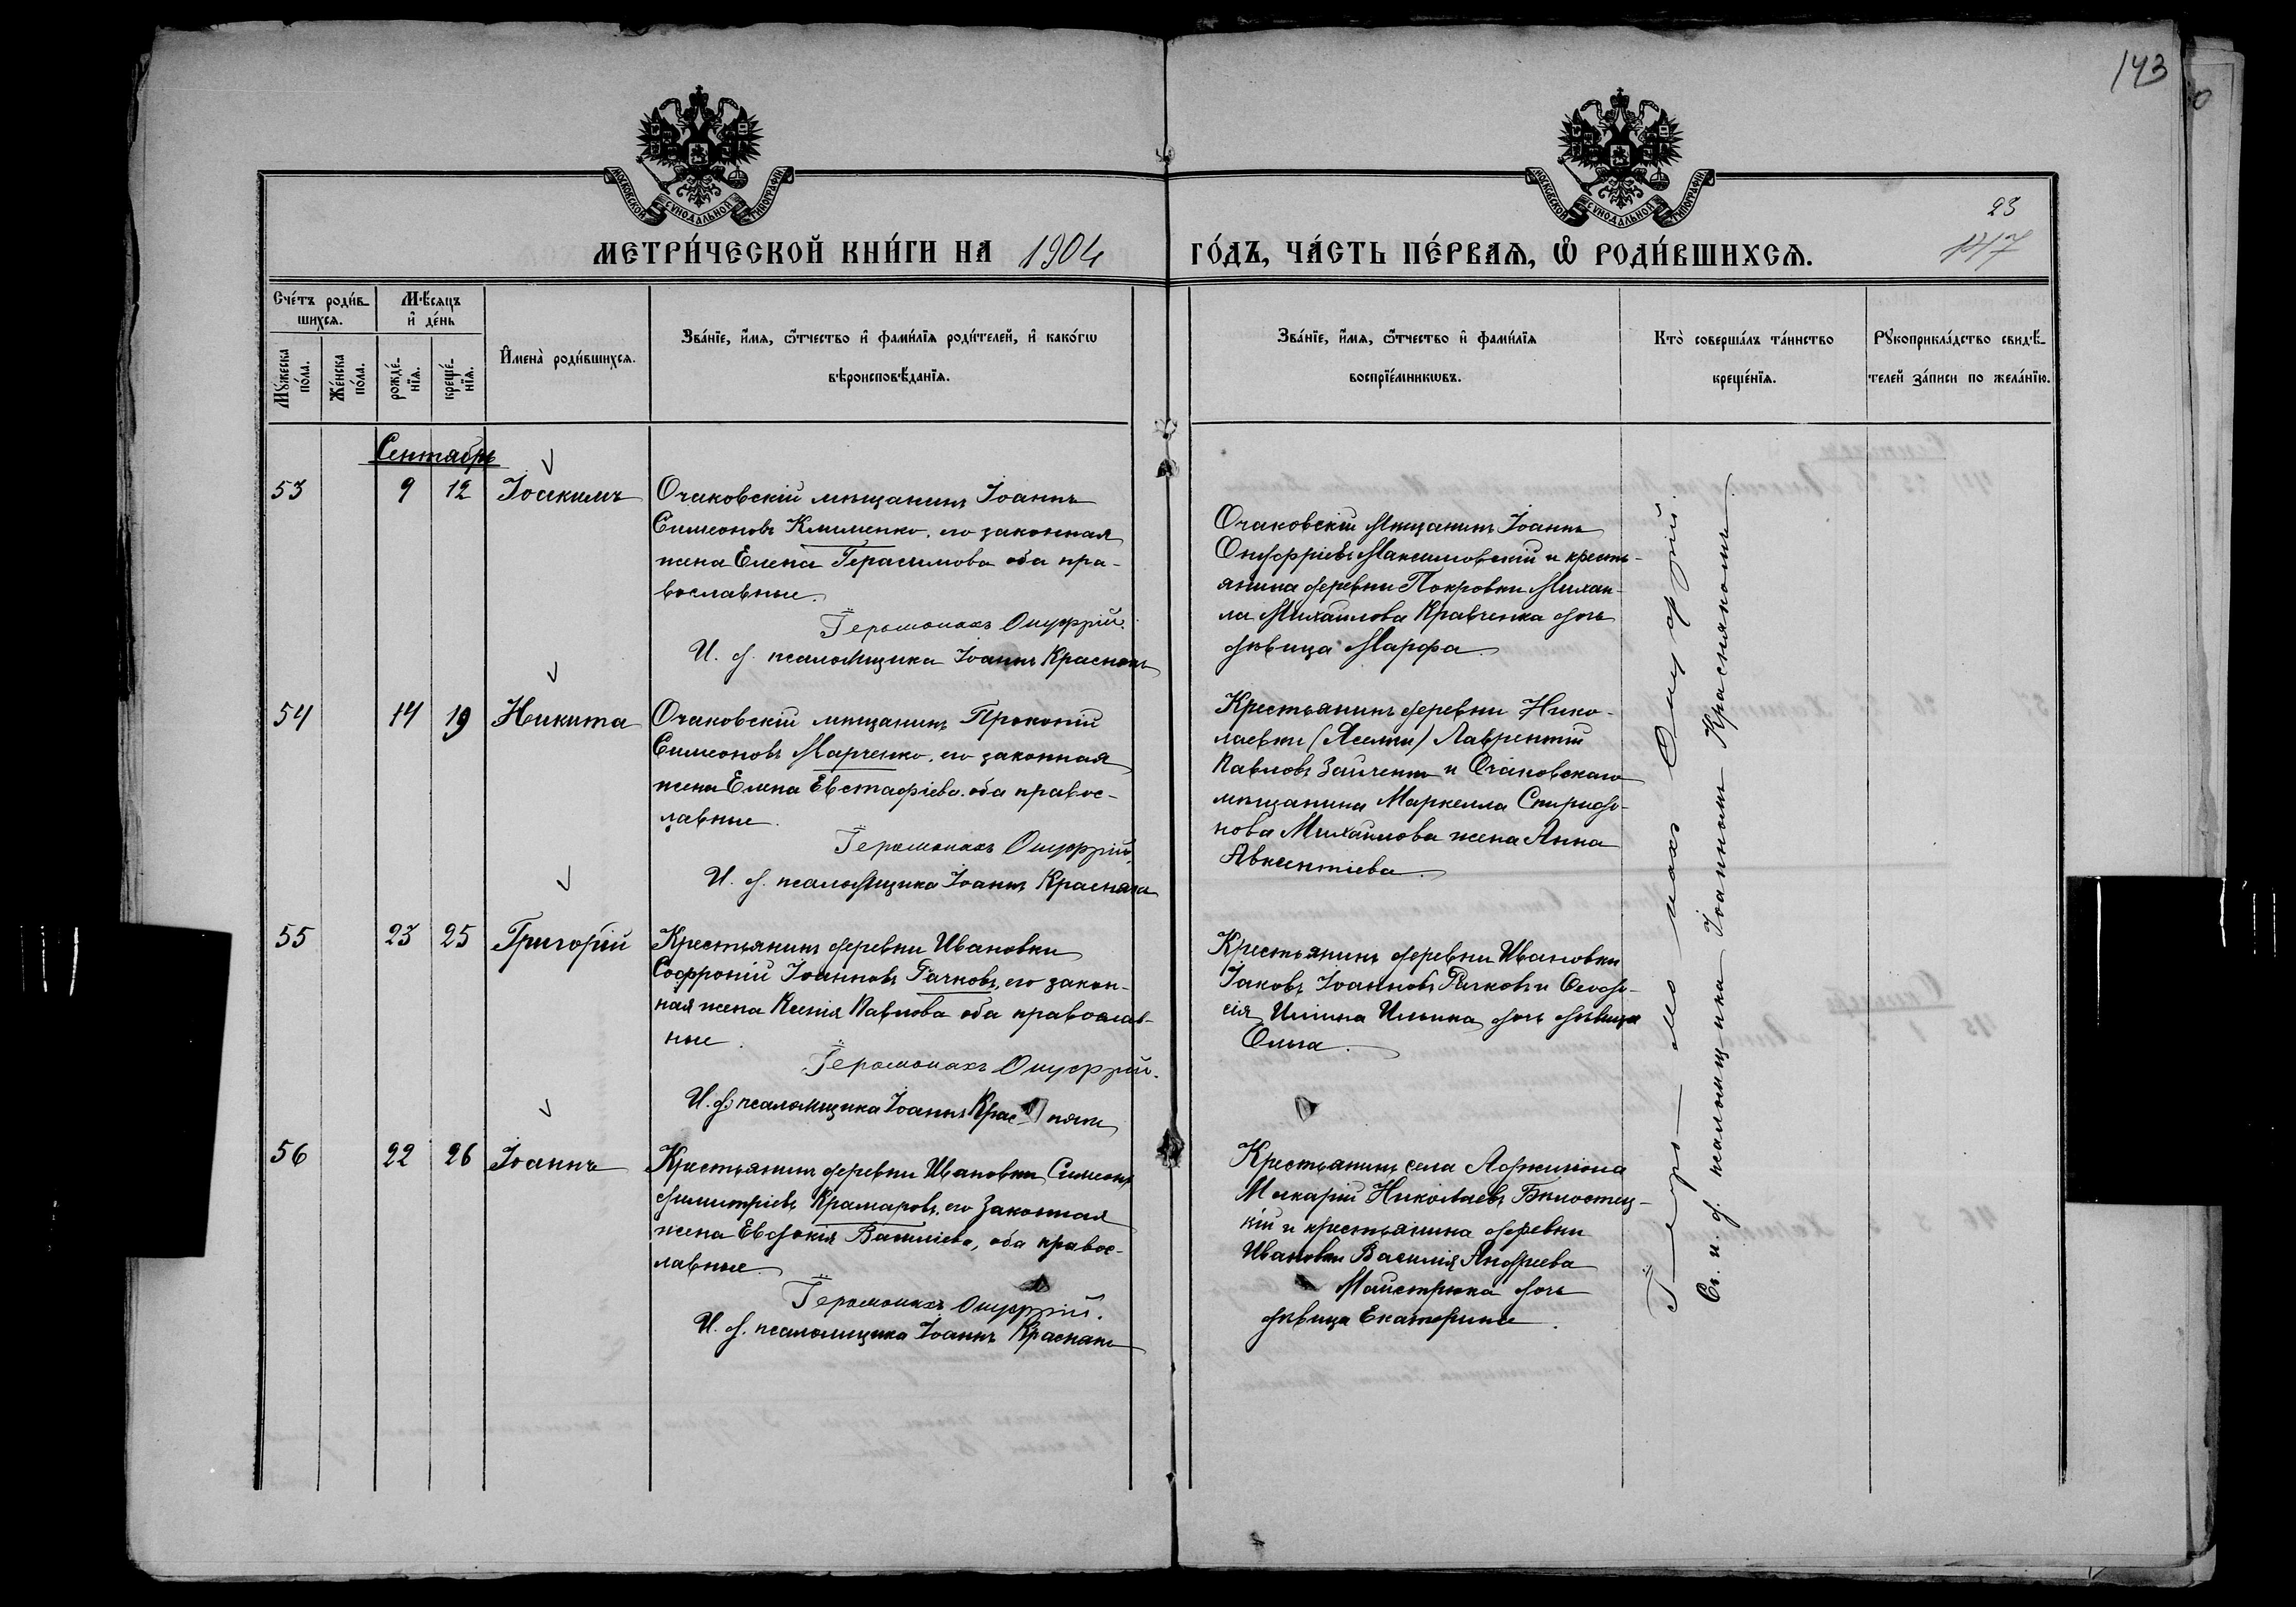 143
МОСКОВСКОЙ СѴНОДАЛЬНОЙ ТИПОГРАФІИ
МОСКОВСКОЙ СѴНОДАЛЬНОЙ ТИПОГРАФІИ
23
МЕТРИ́ЧЕСКОЙ КНИ́ГИ НА 1904 ГО́ДЪ, ЧА́СТЬ ПЕ́РВАѦ, Ѡ҆ РОДИ́ВШИХСѦ.
Сче́тъ роди́в-
шихсѧ.
Мꙋжеска по́ла.
Же́нска по́ла.
Мѣ́сѧцъ
и҆ де́нь
рожде́-
нїѧ.
креще́-
нїѧ.
И҆мена̀ роди́вшихсѧ.
Зва́нїе, и҆́мѧ, ѻ҆́тчество и҆ фами́лїѧ роди́телей, и҆ како́гѡ
вѣроисповѣ́данїѧ.
Зва́нїе, и҆́мѧ, ѻ҆́тчество и҆ фами́лїѧ
воспрїе́мникѡвъ.
Кто̀ соверша́лъ та́инство
креще́нїѧ.
Рꙋкоприкла́дство свидѣ́-
телей за́писи по жела́нїю.
Сентябрь
53 9 12 Іоакимъ
Очаковскій мѣщанинъ Іоаннъ
Симеоновъ Клименко, его законная
жена Елена Герасимова оба пра-
вославные.
Іеромонахъ Онуфрій.
И. д. псаломщика Іоаннъ Краснякъ
Очаковскій мѣщанинъ Іоаннъ
Онуфріевъ Максимовскій и кресть-
янина деревни Покровки Михаи-
ла Михаилова Кравченка дочь
дѣвица Марфа.
54 14 19 Никита
Очаковскій мѣщанинъ Прокопій
Симеоновъ Марченко, его законная
жена Елена Евстафіева оба правос-
лавные.
Іеромонахъ Онуфрій.
И. д. псаломщика Іоаннъ Краснякъ
Крестьянинъ деревни Нико-
лаевки (Аселки) Лаврентій
Павловъ и Очаковскаго
мѣщанина Маркелла Спиридо-
нова Михайлова жена Анна
Авксентіева.
55 23 25 Григорій
Крестьянинъ деревни Ивановки
Софроній Іоанновъ Рачковъ, его закон-
ная жена Ксенія Павлова оба православ-
ные.
Іеромонахъ Онуфрій.
И. д. псаломщика Іоаннъ Краснякъ
Крестьянинъ деревни Ивановки
Іаковъ Іоанновъ Рачковъ и Феодо-
сія Ильина дочь дѣвица
Ольга.
56 22 26 Іоаннъ
Крестьянинъ деревни Ивановки Симеонъ
Димитріевъ Крамаровъ, его законная
жена Евдокія Василіева, оба правос-
лавные.
Іеромонахъ Онуфрій.
И. д. псаломщика Іоаннъ Краснякъ
Крестьянинъ села Аджигіола
Макарій Николаевъ Бѣлостец-
кій и крестьянина деревни
Ивановки Василія Андреева
Майстрюка дочь
дѣвица Екатерина.
Іеромонахъ Онуфрій.
Съ и. д. псаломщика Іоанномъ Краснякомъ.